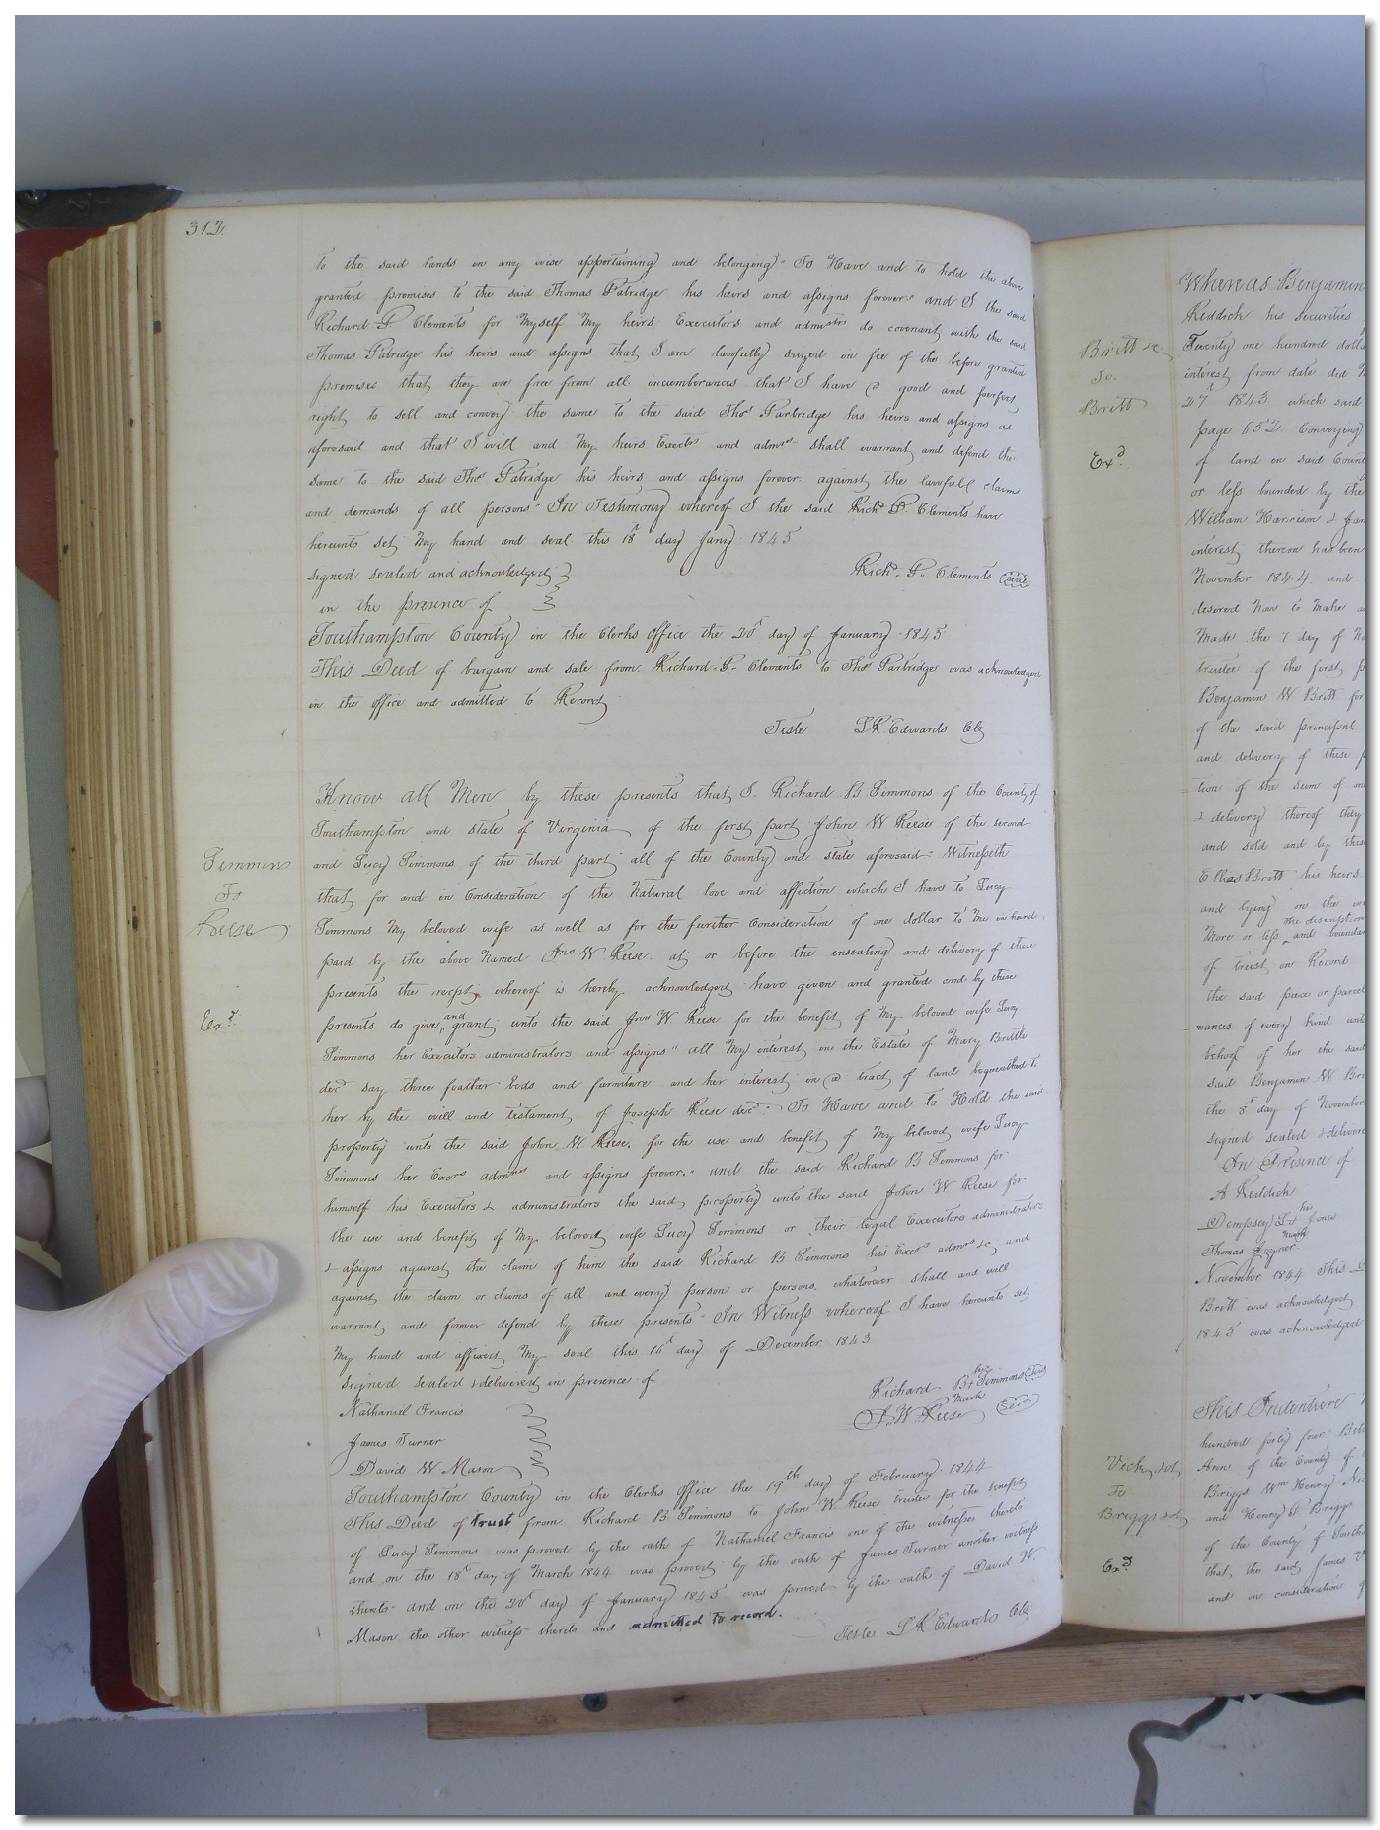 312.
to the said lands in any wise appertaining and belonging" To Have and to hold the above
granted premises to the said Thomas Patridge his heirs and assigns forever" and I the said
Richard P Clements for Myself My heirs Executors and admistrs do covenant with the said
Thomas Patridge his heirs and assigns that I am lawfully seized in fee of the before granted
premises that they are free from all incumberances that I have a good and perfect
right to sell and convey the same to the said Thos Partridge his heirs and assigns as
aforesaid and that I will and My heirs Exectrs and admrs shall warrant and defend the
same to the said Thos Patridge his heirs and assigns forever against the lawfull claims
and demands of all persons" In Testimony whereof I the said Richd P. Clements have
hereunto set My hand and seal this 18 day Jany 1845
signed sealed and acknowledged
Richd P. Clements Seal
in the presence of
Southampton County in the Clerks Office the 20t day of January 1845
This Deed of bargain and sale from Richard P. Clements to Thos Partridge was acknowledged
in the office and admitted to Record
Teste L R Edwards Clk
Know all Men by these presents that I Richard B Simmons of the County of
Southampton and state of Virginia of the first part John W Reese of the second
and Lucy Simmons of the third part all of the County and state aforesaid Witnesseth
that for and in Consideration of the Natural love and affection which I have to Lucy
Simmons My beloved wife as well as for the further Consideration of one dollar to Me in hand
paid by the above Named Jno W Reese at or before the ensealing and delivery of these
presents the receipt whereof is hereby acknowledged have given and granted and by these
presents do give and grant unto the said Jno W Reese for the benefit of My beloved wife Lucy
Simmons her Executors administrators and assigns" all My interest in the Estate of Mary Brittle
decd say three feather beds and furniture and her interest in a tract of land bequeathed to
her by the will and testament of Joseph Reese decd" To Have and to Hold the said
property unto the said John W Reese, for the use and benefit of My beloved wife Lucy
Simmons her Exors admrs and assigns forever" and the said Richard B Simmons for
himself his Executors & administrators the said property unto the said John W Reese for
the use and benefit of My beloved wife Lucy Simmons or their legal Executors administrators
& assigns against the claim of him the said Richard B Simmons his Execrs admrs &c and
against the claim or claims of all and every person or persons whatever shall and will
warrant and forever defend by these presents" In Witness whereof I have hereunto set
My hand and affixed My seal this 16t day of December 1843
signed sealed & delivered in presence of
Richard B + Simmons Seal
his
mark
Nathaniel Francis
J. W Reese Seal
James Turner
David W Mason
Southampton County in the Clerks Office the 19th day of February 1844
This Deed of trust from Richard B Simmons to John W Reese trustee for the benefit
of Lucy Simmons was proved by the oath of Nathaniel Francis one of the witnesses thereto
and on the 18t day of March 1844 was proved by the oath of James Turner another witness
thereto and on the 20t day of January 1845 was proved by the oath of David W.
Mason the other witness thereto and admitted to record.
Teste L R Edwards Clk
Simmons
To
Reese
Exd
Whereas Benjamin
Reddick his securities
Twenty one hundred dolla
interest from date did
27 1843 which said
page 652 Conveying
of land in said Coun
or less bounded by the
William Harrison &
interest therein has been
November 1844 and
desired Now to Make
Made the 7 day of No
trustee of the first p
Benjamin W Britt for
of the said principal
and delivery of these p
tion of the sum of on
& delivery thereof they
and sold and by these
Elias Britt his heirs
and lying on the
the description
More or less and bounda
of trust on Record
the said piece or parcel
nances of every kind unto
behoof of her the said
said Benjamin W Bri
the 8t day of November
signed sealed & delivere
In Presence of
A Reddick
his
Dempsey + Jones
mark
Thomas Joyner
November 1844 This
Britt was acknowledged
1845 was acknowledged
Britt &c
To
Britt
Exd
This Indenture
hundred forty four Bet
Ann of the County of
Briggs Wm Henry
and Henry P Briggs
of the County of South
that the said James
and in consideration
Vick
To
Briggs
Exd